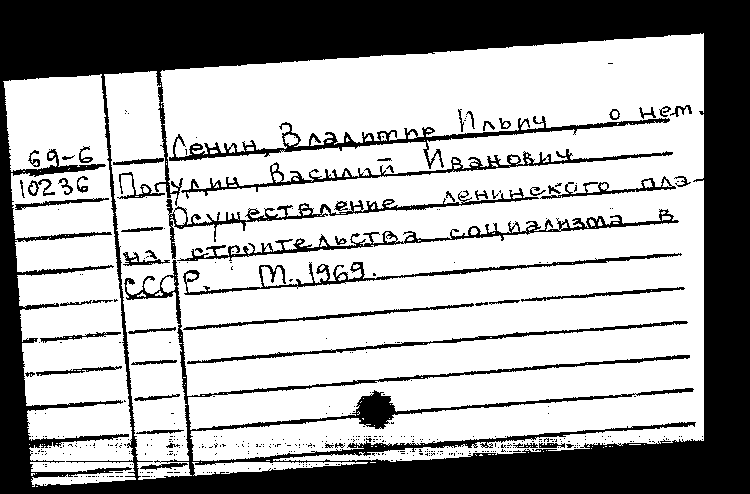 Ленин, Владимир Ильич, о нем.
69-6
10236 Погудин, Василий Иванович
Осуществление ленинского пла-
на строительства социализма в
СССР. М., 1969.